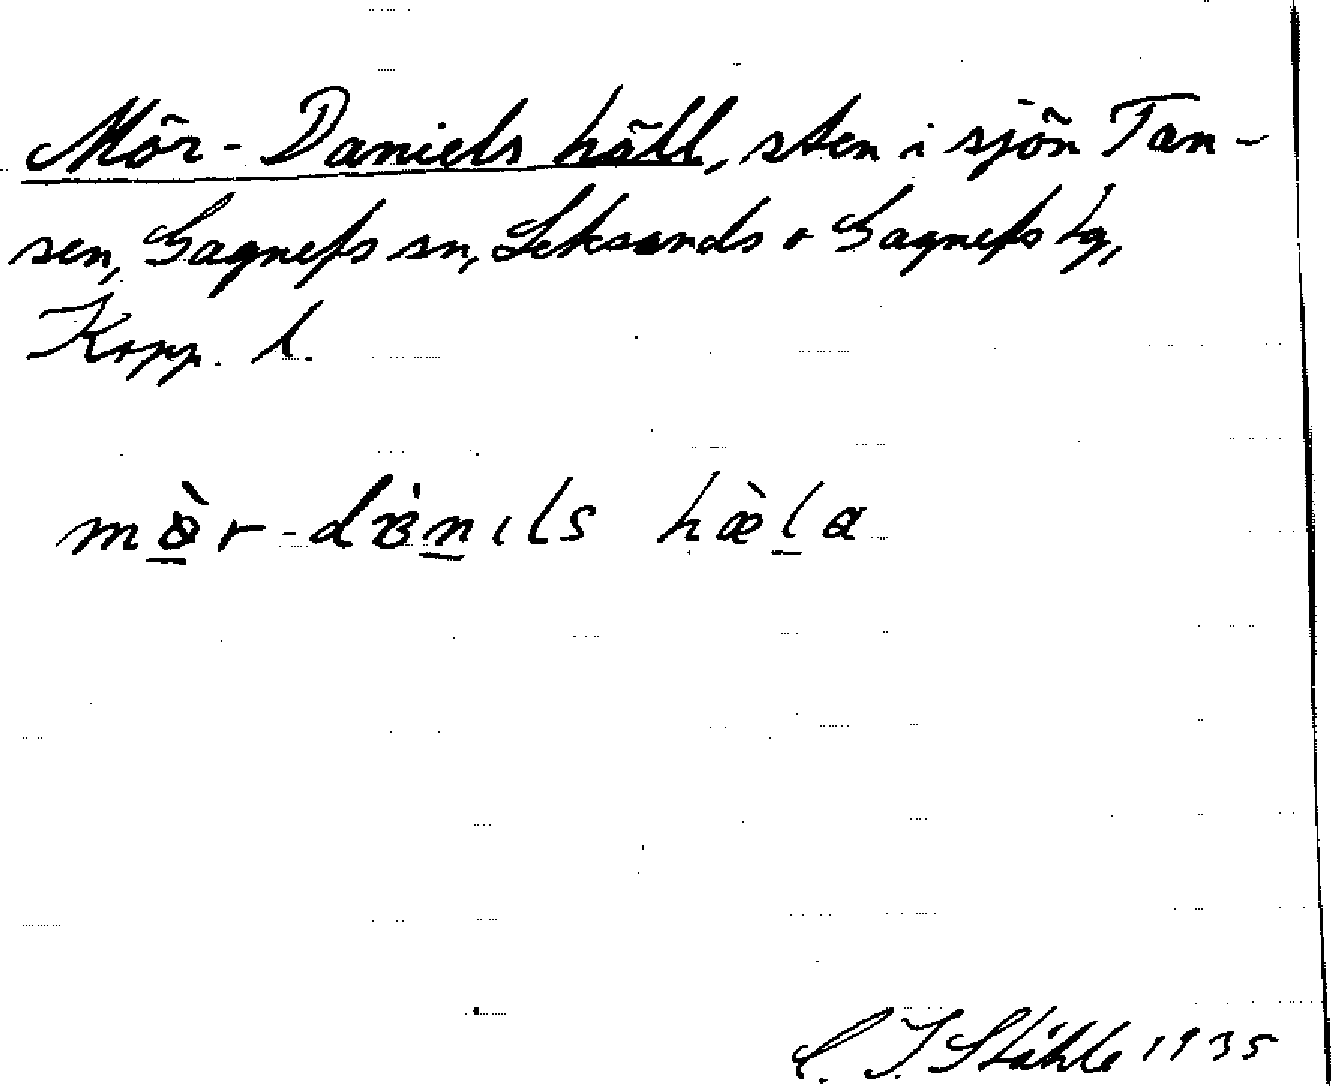 Mör-Daniels häll, sten i sjön Tan-
sen, Gagnefs sn, Leksands o Gagnefs tg,
Kopp. l.
hæ̀la
C. I. Ståhle 1935